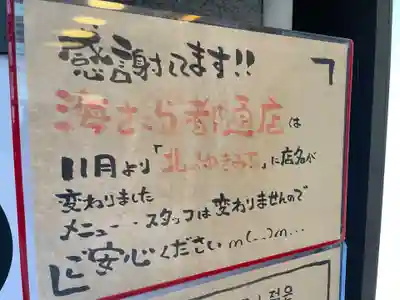 感謝してます!!
海さくら都通店は
11月より「北のゆきみち」に店名が
変わりました
メニュー・スタッフは変わりませんので
ご安心ください m(_ _)m...